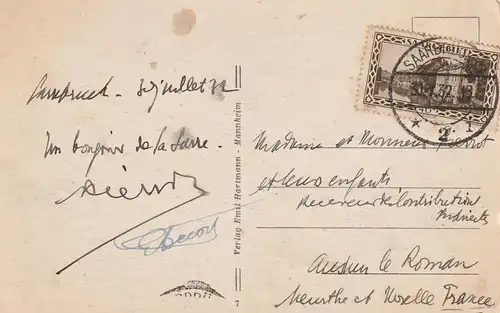 Sarrebruck - 30 juillet 32
Un bonjour de la Sarre.
Verlag Emil Hartmann - Mannheim
7
SAARBR
30.7.32
* 2
Madame et Monsieur Pierrot
et leurs enfants
Receveur des Contributions
Indirectes
Audun le Roman
Meurthe et Moselle France